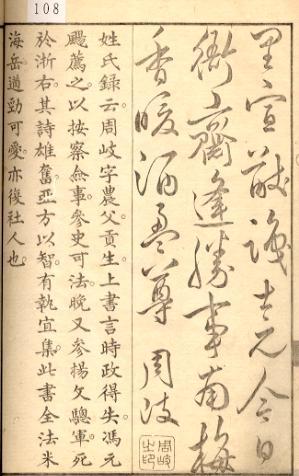 108
里宣猷識士元今日
衙齋逢勝事南梅
香暖酒盈尊 周岐
周岐之印
姓氏録云周岐字農父貢生上書言時政得失馮元
颺薦之以按察僉事參史可法晚又參楊文驄軍死
於浙右其詩雄奮亞方以智有執宜集此書全法米
海岳遒勁可愛亦復社人也